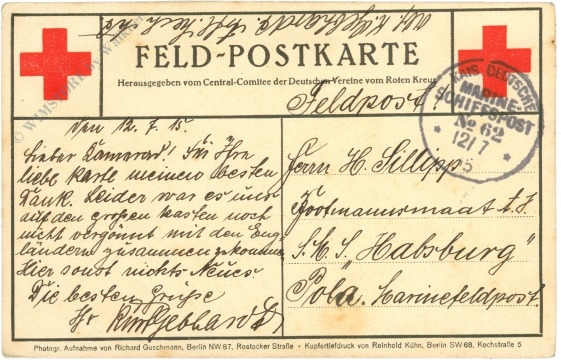 FELD-POSTKARTE
Herausgegeben vom Central-Comitee der Deutschen Vereine vom Roten Kreuz
Feldpost!
KAIS. DEUTSCHE
MARINE-
SCHIFFSPOST
No 62
12/7
15
den 12.7.15.
Lieber Kamerad! Für Ihre
liebe Karte meinen besten
Dank. Leider war es uns
auf den großen Kasten noch
nicht vergönnt mit den Eng-
ländern zusammen zu kommen.
Hier sonst nichts Neues.
Die besten Grüße
Ihr Kurt Gebhardt
Herrn H. Sillipp
Bootsmannsmaat d. R.
S. M. S. „Habsburg"
Pola. Marinefeldpost.
Photogr. Aufnahme von Richard Guschmann, Berlin NW 87, Rostocker Straße • Kupfertiefdruck von Reinhold Kühn, Berlin SW 68, Kochstraße 5